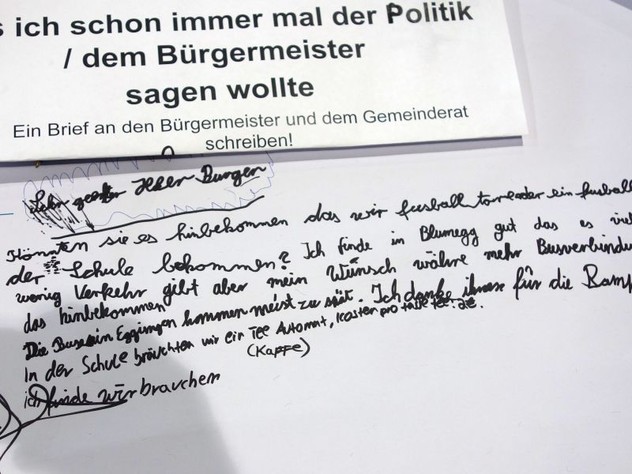 ich schon immer mal der Politik
/ dem Bürgermeister
sagen wollte
Ein Brief an den Bürgermeister und dem Gemeinderat
schreiben!
Herr Burger
Könnten sie es hinbekommen das wir fussball ein fussball
der Schule bekommen? Ich finde in Blumegg gut das es
wenig Verkehr gibt aber mein Wunsch währe mehr Busverbindu
das hinbekommen
Die Buse in Eggingen kommen meist zu spät. Ich danke ihnen für die Ramp
In der Schule bräuchten wir ein Tee Automt, kosten pro tasse
(Kaffe)
ich finde wir brauchen